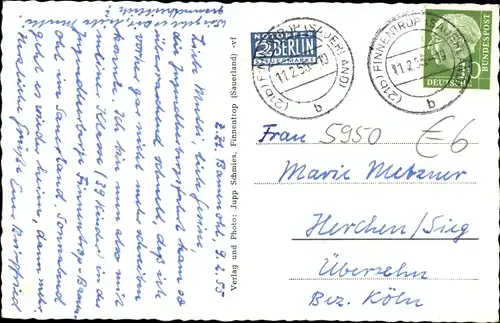 z. Zt. Bamenohl, 9.2.55
Liebe Mutti, liebe
die Jugendherbergsfahrt kam so
überraschend schnell, daß ich
vorher gar nicht mehr schreiben
konnte. Ich bin nun also mit
der Klasse (39 Kinder) in der
Jugendherberge Finnentrop-Bamen-
ohl im Sauerland. Sonnabend
geht es wieder heim, dann mehr.
Herzliche Grüße
Verlag und Photo: Jupp Schmies, Finnentrop (Sauerland) -vf
NOTOPFER
2 BERLIN
STEUERMARKE
(21b) FINNENTROP (SAUERLAND)
11.2.55
b
(21b) FINNENTROP (SAUERLAND)
11.2.55
b
DEUTSCHE BUNDESPOST
Frau 5950
€6
Marie Metzner
Herchen/Sieg
Überzehn
Bez. Köln